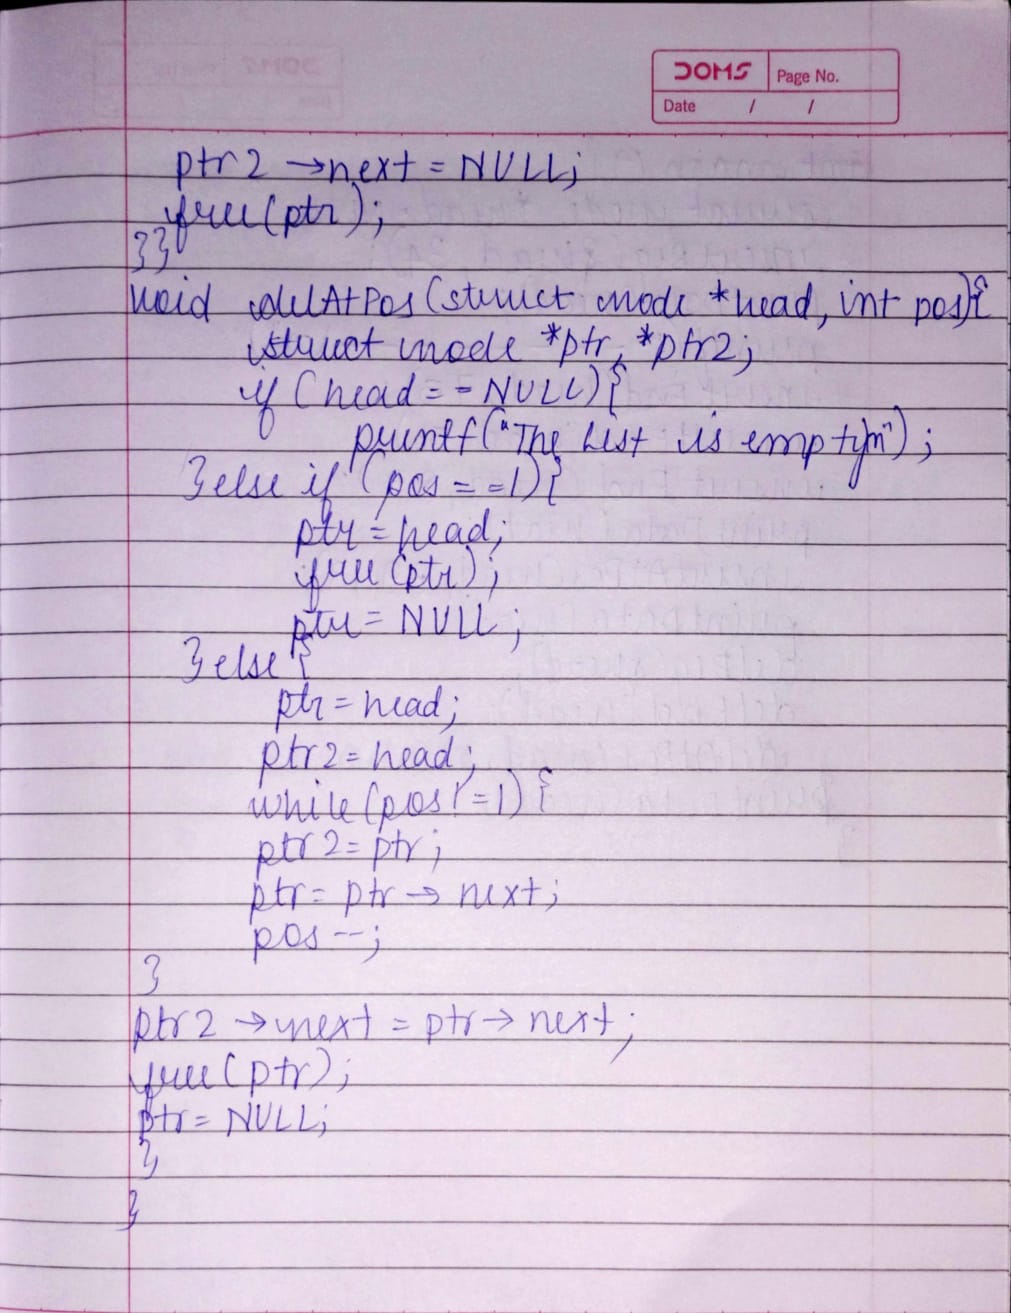 DOMS
Page No.
Date / /
ptr2 →next = NULL;
free(ptr);
}}
void delAtPos (struct node *head, int pos){
struct node *ptr, *ptr2;
if (head==NULL){
printf("The List is empty\n");
}else if (pos==1){
ptr=head;
free(ptr);
ptr=NULL;
}else{
ptr=head;
ptr2=head;
while(pos!=1){
ptr2=ptr;
ptr=ptr→next;
pos--;
}
ptr2→next=ptr→next;
free(ptr);
ptr=NULL;
}
}